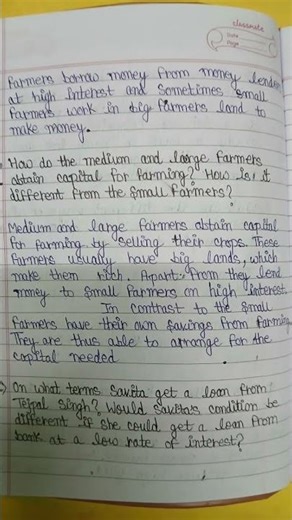 classmate
Date
Page
Farmers borrow money from money lender
at high interest and sometimes small
farmers work in big farmers land to
make money.
How do the medium and large farmers
obtain capital for farming? How is it
different from the small farmers?
Medium and large farmers obtain capital
for farming by selling their crops. These
farmers usually have big lands, which
make them rich. Apart from they lend
money to small farmers on high interest.
In contrast to the small
farmers have their own savings from farming.
They are thus able to arrange for the
capital needed
On what terms Savita get a loan from
Tejpal Singh? Would Savita's condition be
different if she could get a loan from
bank at a low rate of interest?